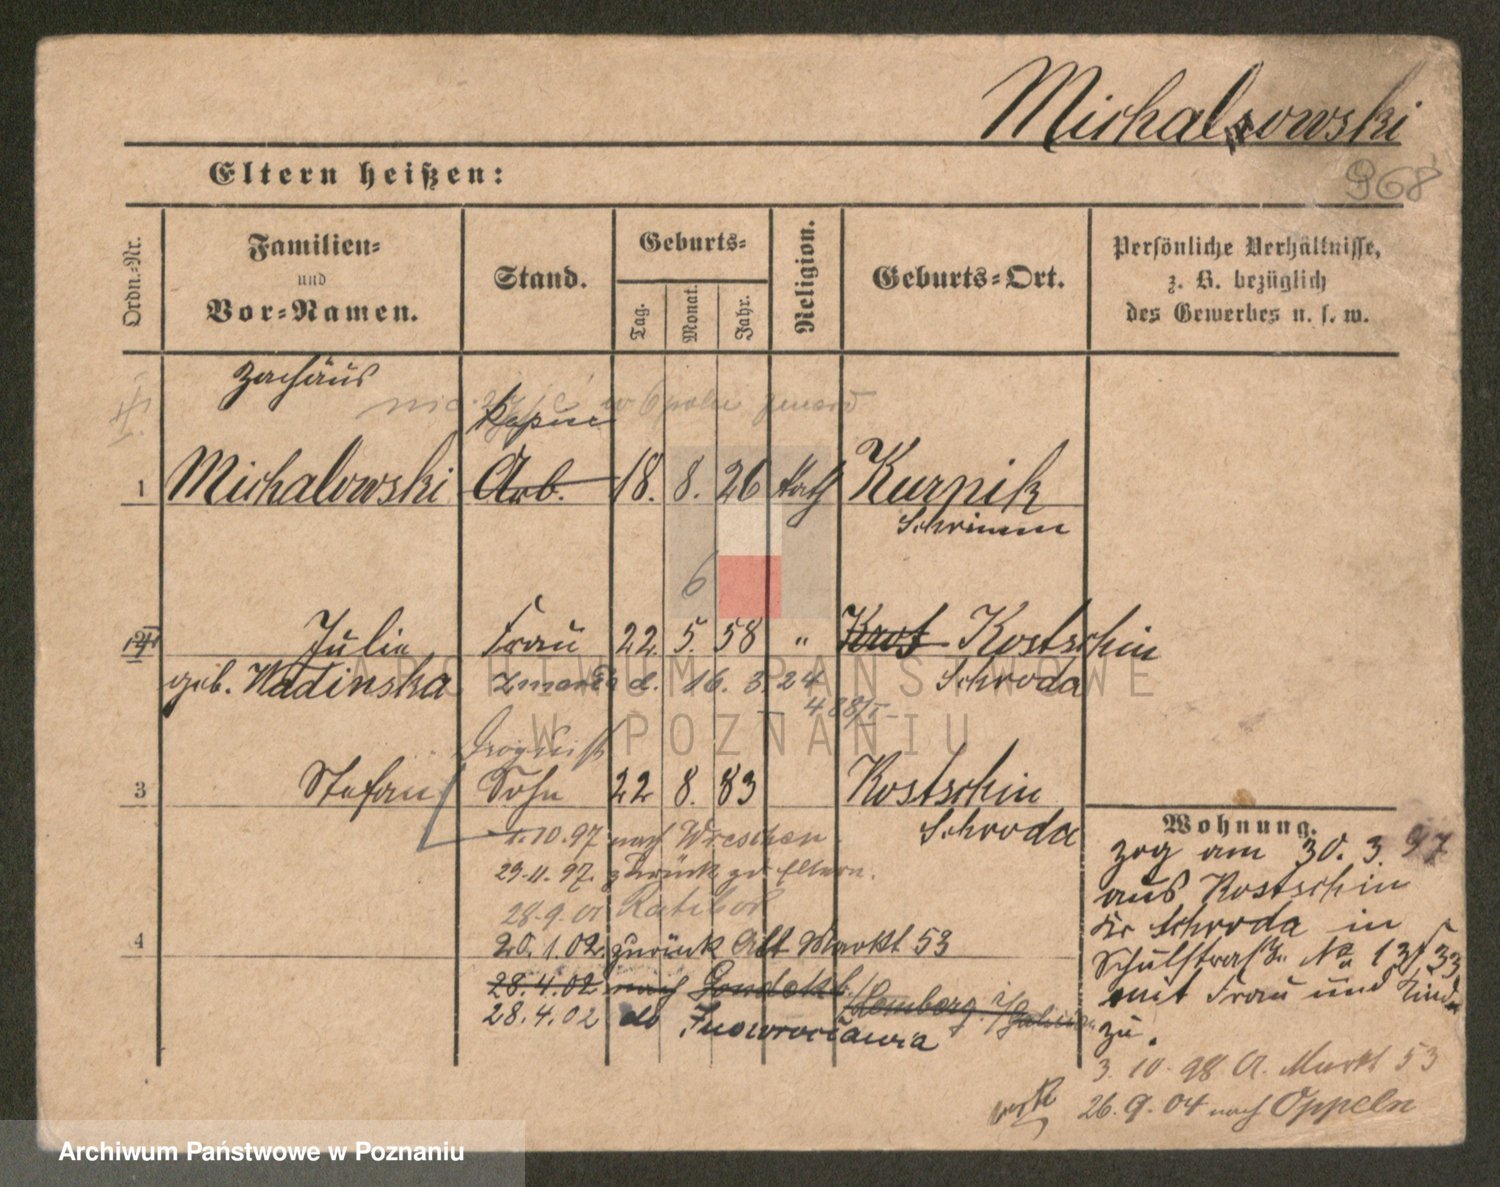 Michalowski
968
Eltern heißen:
Ordn.-Nr.
Familien-
und
Vor-Namen.
Stand.
Geburts-
Tag.
Monat.
Jahr.
Religion.
Geburts-Ort.
Persönliche Verhältnisse,
z. B. bezüglich
des Gewerbes u. s. w.
Zachäus
1 Michalowski Arb. 18. 8. 26 kath Kurnik
Schrimm
6
Julie Frau 22. 5. 58 " Krot Kostschin
geb. Wadinska d. 16. 3. 24 Schroda
3 Stefan Sohn 22 8. 83 Kostschin
Schroda
1.10.97 nach Wreschen
29.11.97. zurück zu Eltern.
28.9.01 Ratibor
4
20.1.02. zurück Alt Markt 53
28.4.02 nach Lemberg i/Galizien
28.4.02 do Inowrocławia
Wohnung.
zog am 30. 3. 97
aus Kostschin
Kr Schroda in
Schulstraße No 13
mit Frau und Kind
zu.
3. 10. 98 A. Markt 53
26. 9. 04 nach Oppeln
ARCHIWUM PAŃSTWOWE
W POZNANIU
Archiwum Państwowe w Poznaniu